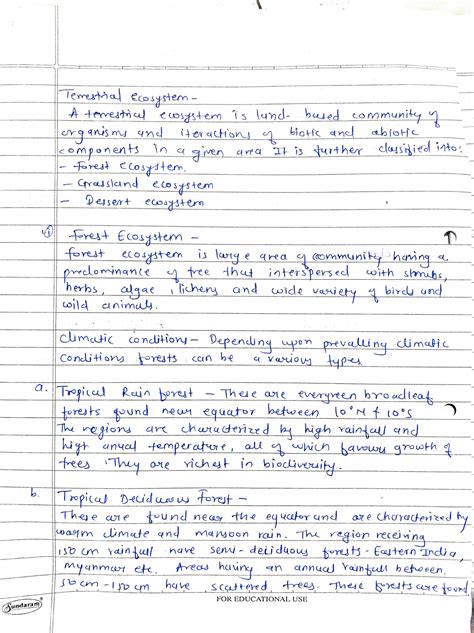 Terrestrial ecosystem -
A terrestrial ecosystem is land- based community of
organisms and iteractions of biotic and abiotic
components In a given area It is further classified into:
- Forest ecosystem.
- Grassland ecosystem
- Dessert ecosystem
1) Forest Ecosystem -
forest ecosystem is large area of community having a
predominance of tree that interspersed with shrubs,
herbs, algae, lichens and wide variety of birds and
wild animals.
Climatic conditions - Depending upon prevalling climatic
Conditions forests can be a various types
a. Tropical Rain forest - These are evergreen broadleaf
forests found near equator between 10°N & 10°S
The regions are characterized by high rainfall and
high anual temperature, all of which favours growth of
trees They are richest in biodiversity.
b. Tropical Deciduous Forest -
These are found near the equator and are characterized by
warm climate and mansoon rain. The region receiving
150 cm rainfall have semi-deciduous forests - Eastern India,
Myanmar etc. Areas having an annual rainfall between
50 cm - 150 cm have scattered trees. These forests are found
Sundaram
FOR EDUCATIONAL USE